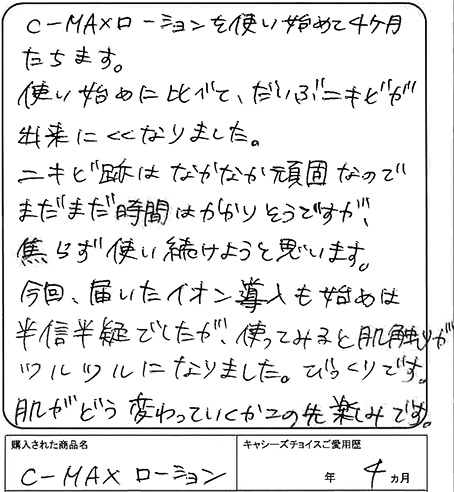 C-MAXローションを使い始めて4ケ月
たちます。
使い始めに比べて、だいぶニキビが
出来にくくなりました。
ニキビ跡はなかなか頑固なので
まだまだ時間はかかりそうですが、
焦らず使い続けようと思います。
今回、届いたイオン導入も始めは
半信半疑でしたが、使ってみると肌触りが
ツルツルになりました。びっくりです。
肌がどう変わっていくかこの先楽しみです。
購入された商品名 キャシーズチョイスご愛用歴
C-MAX ローション 年 4 ヵ月